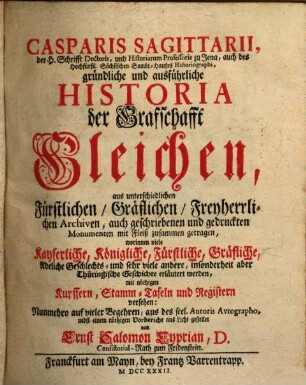 CASPARIS SAGITTARII,
der H. Schrifft Doctoris, und Historiarum Professoris zu Jena, auch des
Hochfürstl. Sächsischen Samt-Hauses Historiographi,
gründliche und ausführliche
HISTORIA
der Grafschafft
Gleichen,
aus unterschiedlichen
Fürstlichen / Gräflichen / Freyherrli-
chen Archiven, auch geschriebenen und gedruckten
Monumenten mit Fleiß zusammen getragen,
worinnen viele
Kayserliche, Königliche, Fürstliche, Gräfliche,
Adeliche Geschlechts- und sehr viele andere, insonderheit aber
Thüringische Geschichte erläutert werden,
mit nöthigen
Kupffern, Stamm-Tafeln und Registern
versehen;
Nunmehro auf vieler Begehren, aus des seel. Autoris Avtographo,
nebst einem nöthigen Vorbericht ans Licht gestellet
von
Ernst Salomon Cyprian, D.
Consistorial-Rath zum Friedenstein.
Franckfurt am Mayn, bey Frantz Varrentrapp.
M DCC XXXII.